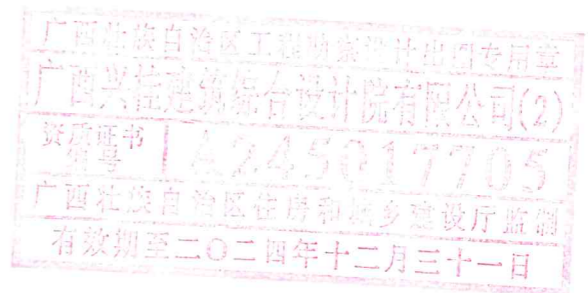 广西壮族自治区工程勘察设计出图专用章
广西兴桂建筑综合设计院有限公司(2)
资质证书
编号
A245017705
广西壮族自治区住房和城乡建设厅监制
有效期至二〇二四年十二月三十一日